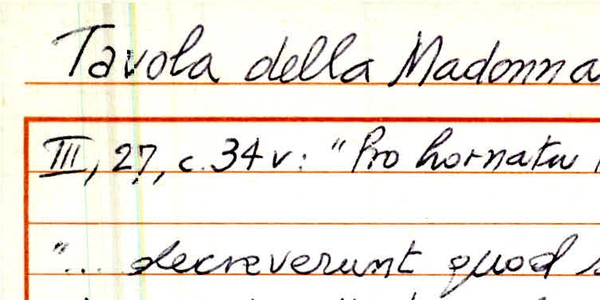 Tavola della Madonna
III, 27, c. 34v: "Pro hornatu
"... decreverunt quod